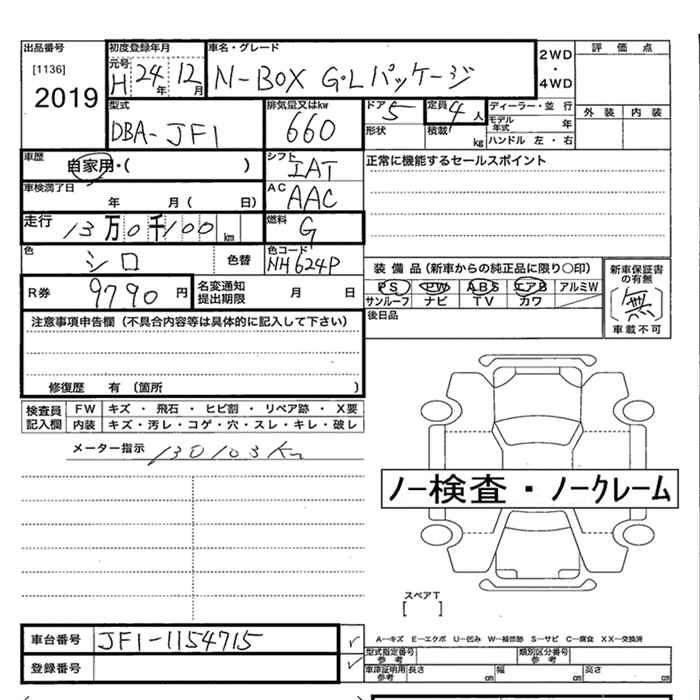 出品番号 初度登録年月 車名・グレード 2WD・4WD 評価点
[1136] 元号 H 24年 12月 N-BOX G・Lパッケージ
2019
型式 排気量又はkw ドア 5 定員 4人 ディーラー・並行 外装 内装
DBA-JF1 660 形状 積載 kg モデル年式 年
ハンドル 左・右
車歴 自家用・( ) シフト IAT 正常に機能するセールスポイント
車検満了日 年 月( 日) AC AAC
走行 13万0千100km 燃料 G
色 シロ 色替 色コード NH624P 装備品(新車からの純正品に限り○印) 新車保証書の有無
R券 9790円 名変通知提出期限 月 日 PS PW ABS エアB アルミW 〔無〕
サンルーフ ナビ TV カワ 車載不可
注意事項申告欄(不具合内容等は具体的に記入して下さい) 後日品
修復歴 有 (箇所 )
検査員記入欄 FW キズ・飛石・ヒビ割・リペア跡・X要
内装 キズ・汚レ・コゲ・穴・スレ・キレ・破レ
メーター指示 130103Km
ノー検査・ノークレーム
スペアT
[ ]
車台番号 JF1-1154715 ✓ A―キズ E―エクボ U―凹み W―補修跡 S―サビ C―腐食 XX―交換済
登録番号 ✓ 型式指定番号 参考 類別区分番号 参考
車庫証明用 参考 長さ cm 幅 cm 高さ cm